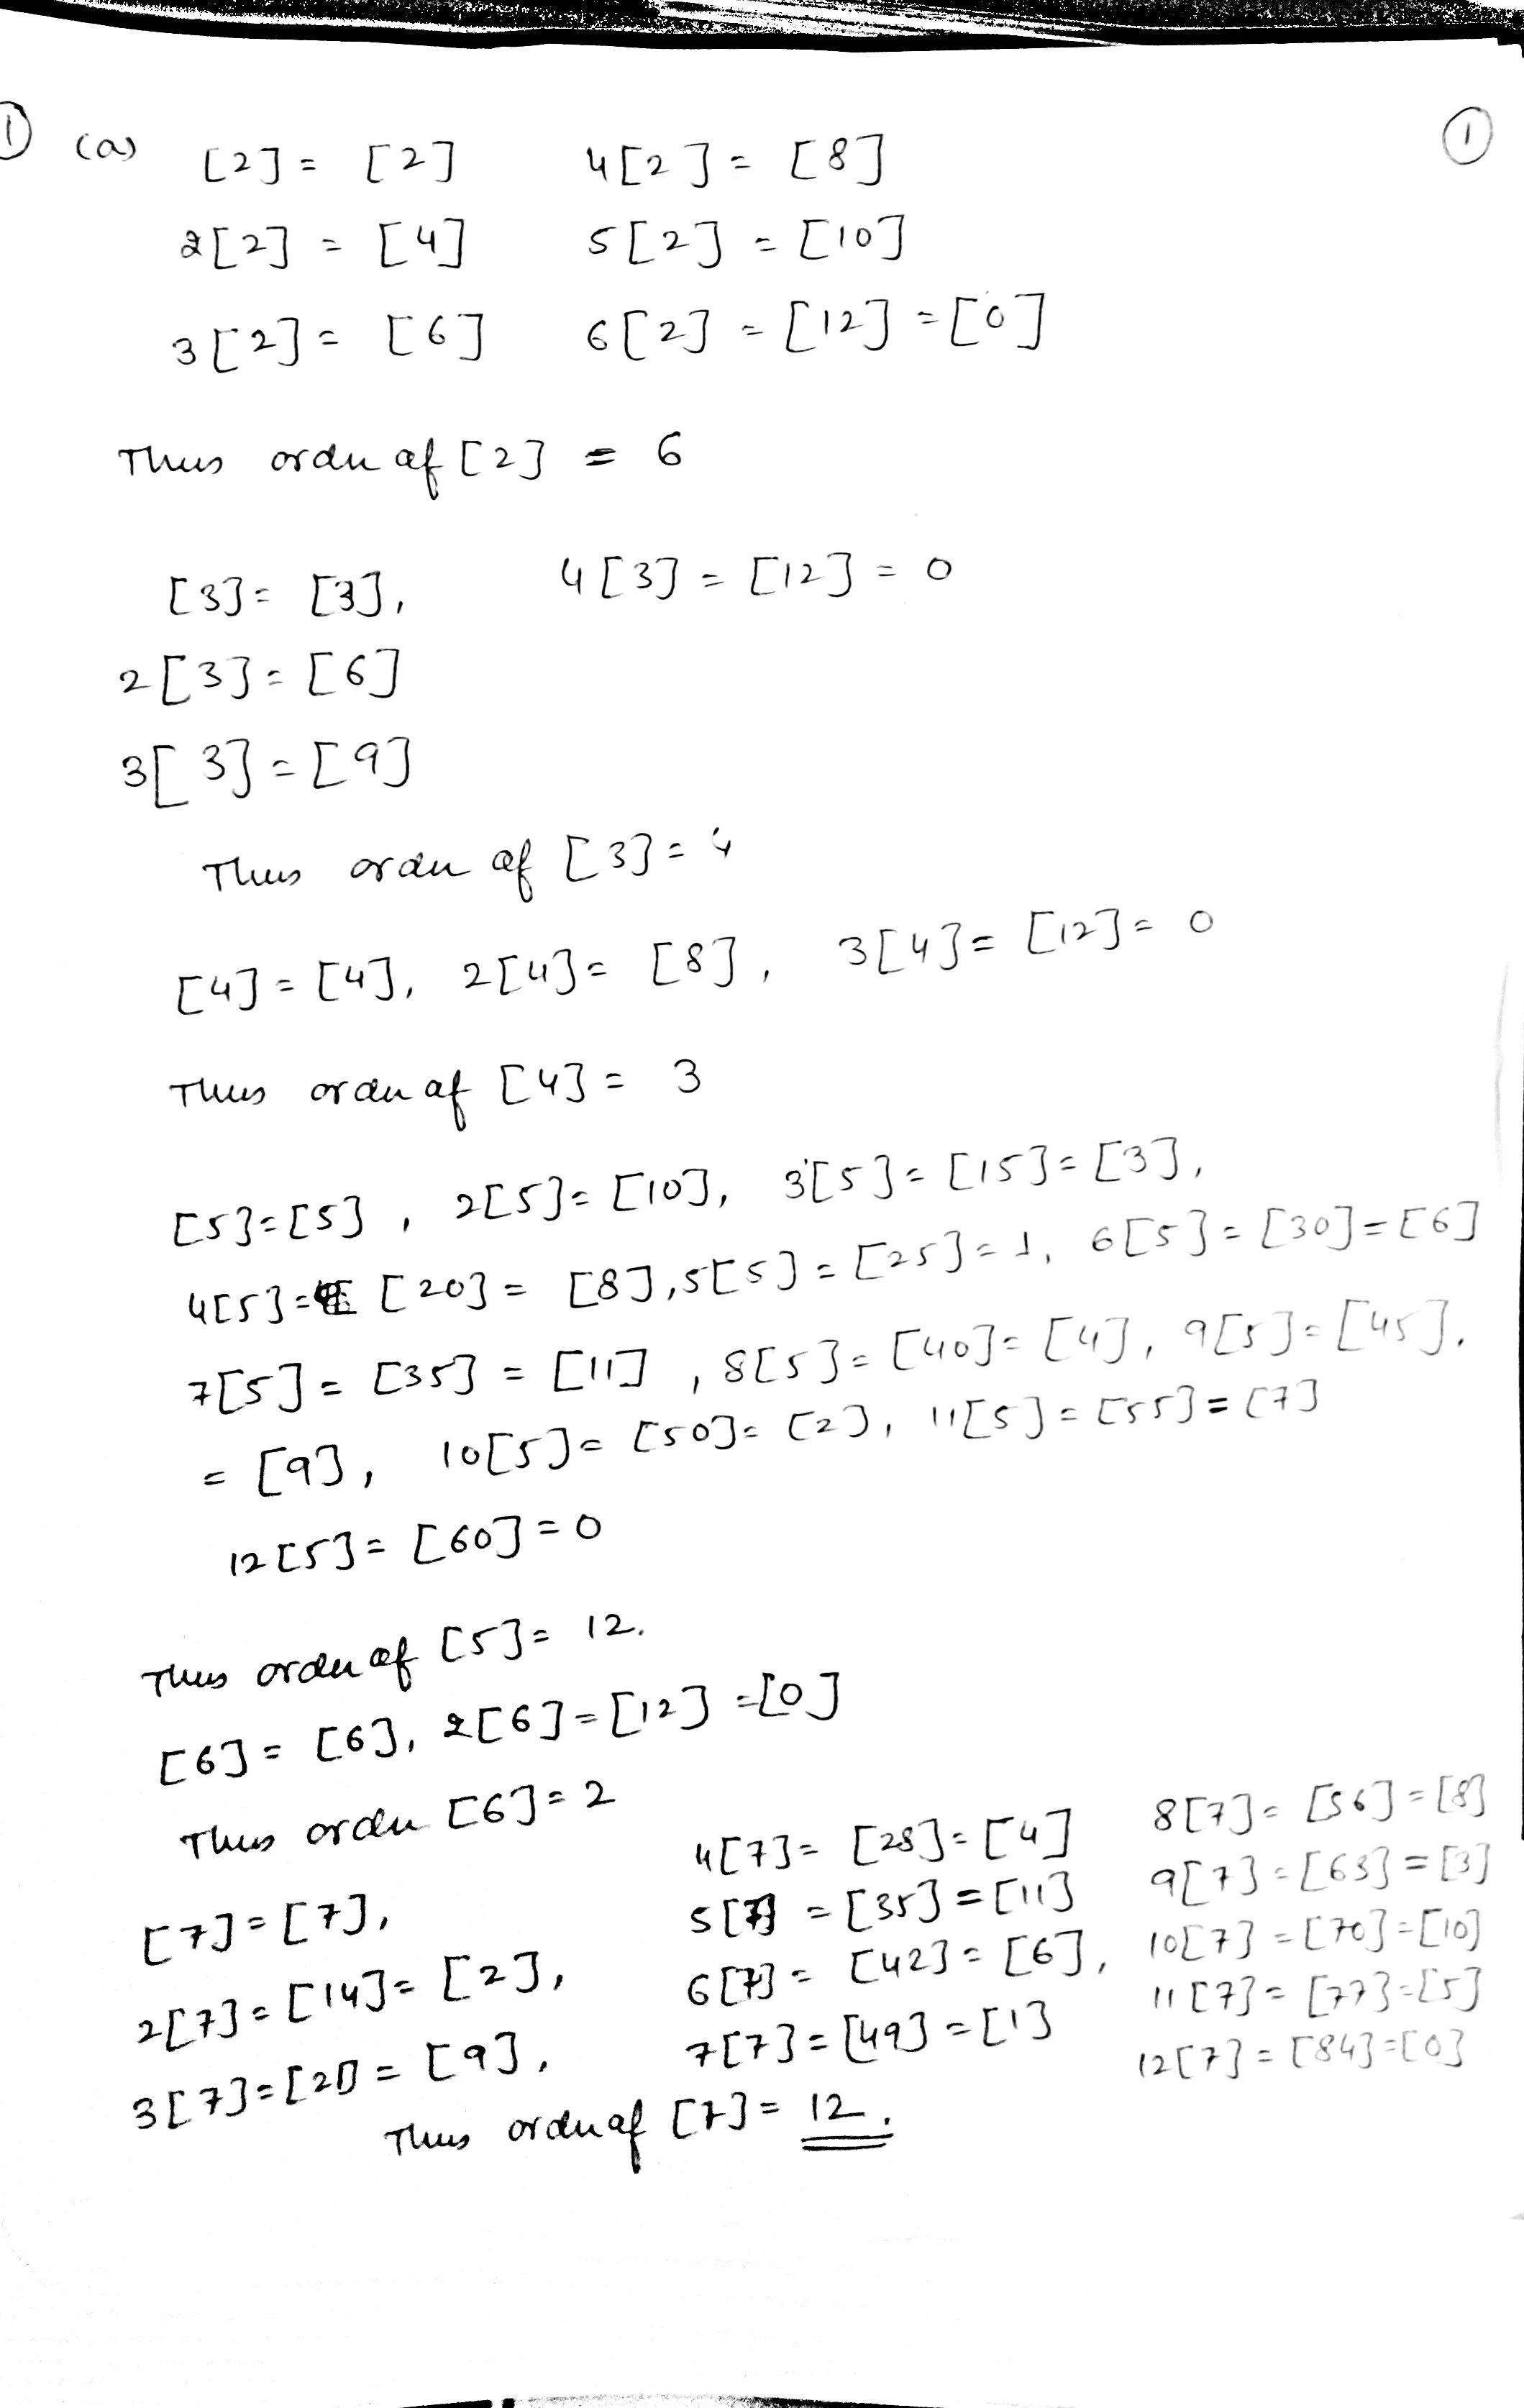 ① (a) [2] = [2] 4[2] = [8] ①
2[2] = [4] 5[2] = [10]
3[2] = [6] 6[2] = [12] = [0]
Thus order of [2] = 6
[3] = [3], 4[3] = [12] = 0
2[3] = [6]
3[3] = [9]
Thus order of [3] = 4
[4] = [4], 2[4] = [8], 3[4] = [12] = 0
Thus order of [4] = 3
[5] = [5], 2[5] = [10], 3[5] = [15] = [3],
4[5] = [20] = [8], 5[5] = [25] = 1, 6[5] = [30] = [6]
7[5] = [35] = [11], 8[5] = [40] = [4], 9[5] = [45],
= [9], 10[5] = [50] = [2], 11[5] = [55] = [7]
12[5] = [60] = 0
Thus order of [5] = 12.
[6] = [6], 2[6] = [12] = [0]
Thus order [6] = 2
[7] = [7], 4[7] = [28] = [4] 8[7] = [56] = [8]
2[7] = [14] = [2], 5[7] = [35] = [11] 9[7] = [63] = [3]
3[7] = [21] = [9], 6[7] = [42] = [6], 10[7] = [70] = [10]
7[7] = [49] = [1] 11[7] = [77] = [5]
12[7] = [84] = [0]
Thus order of [7] = 12.